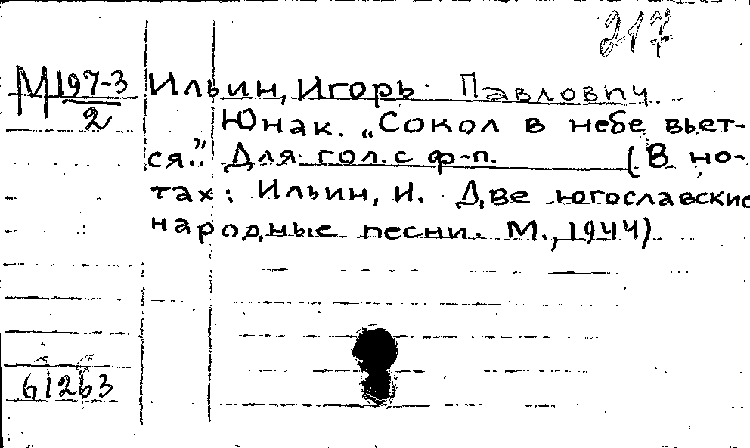 217
М 197-3
2
Ильин, Игорь Павлович
Юнак. „Сокол в небе вьет-
ся." Для гол. с ф-п. (В но-
тах: Ильин, И. Две югославские
народные песни. М., 1944)
61263